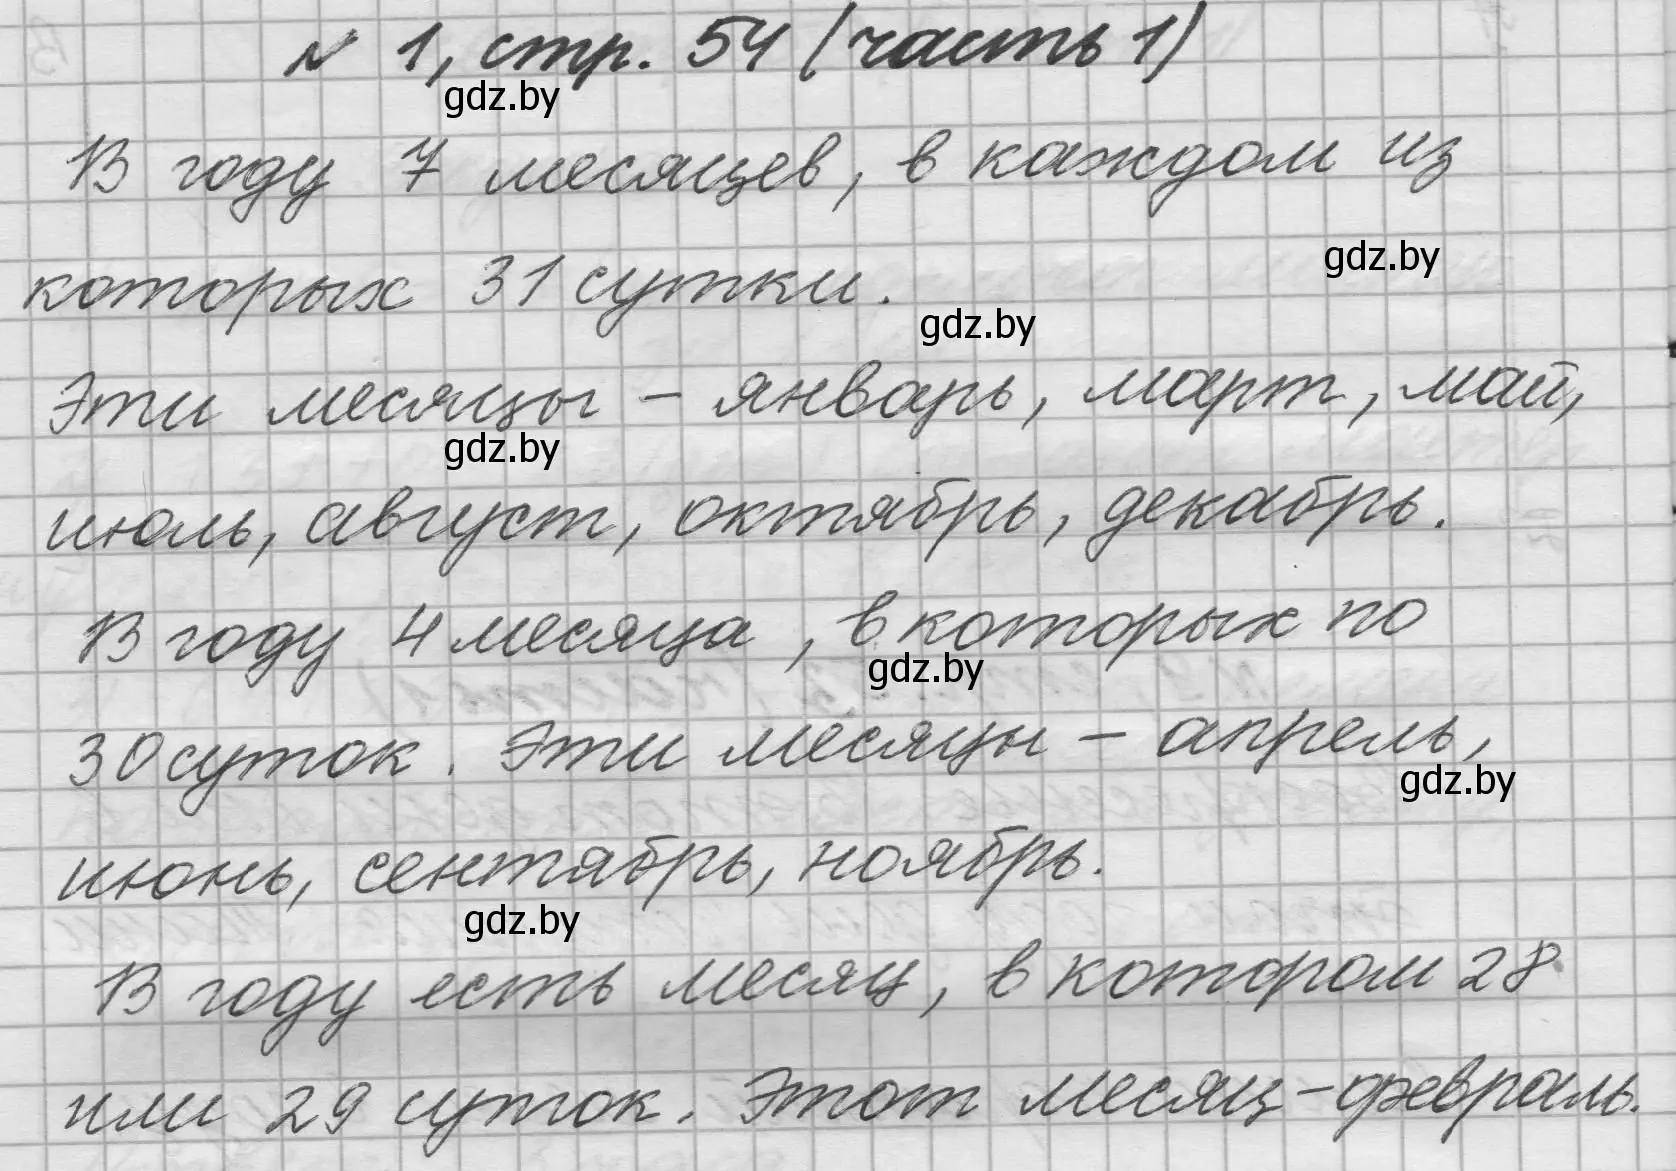 № 1, стр. 54 (часть 1)
gdz.by
В году 7 месяцев, в каждом из
gdz.by
которых 31 сутки.
gdz.by
Эти месяцы – январь, март, май,
gdz.by
июль, август, октябрь, декабрь.
В году 4 месяца, в которых по
gdz.by
30 суток. Эти месяцы – апрель,
gdz.by
июнь, сентябрь, ноябрь.
gdz.by
В году есть месяц, в котором 28
или 29 суток. Этот месяц – февраль.